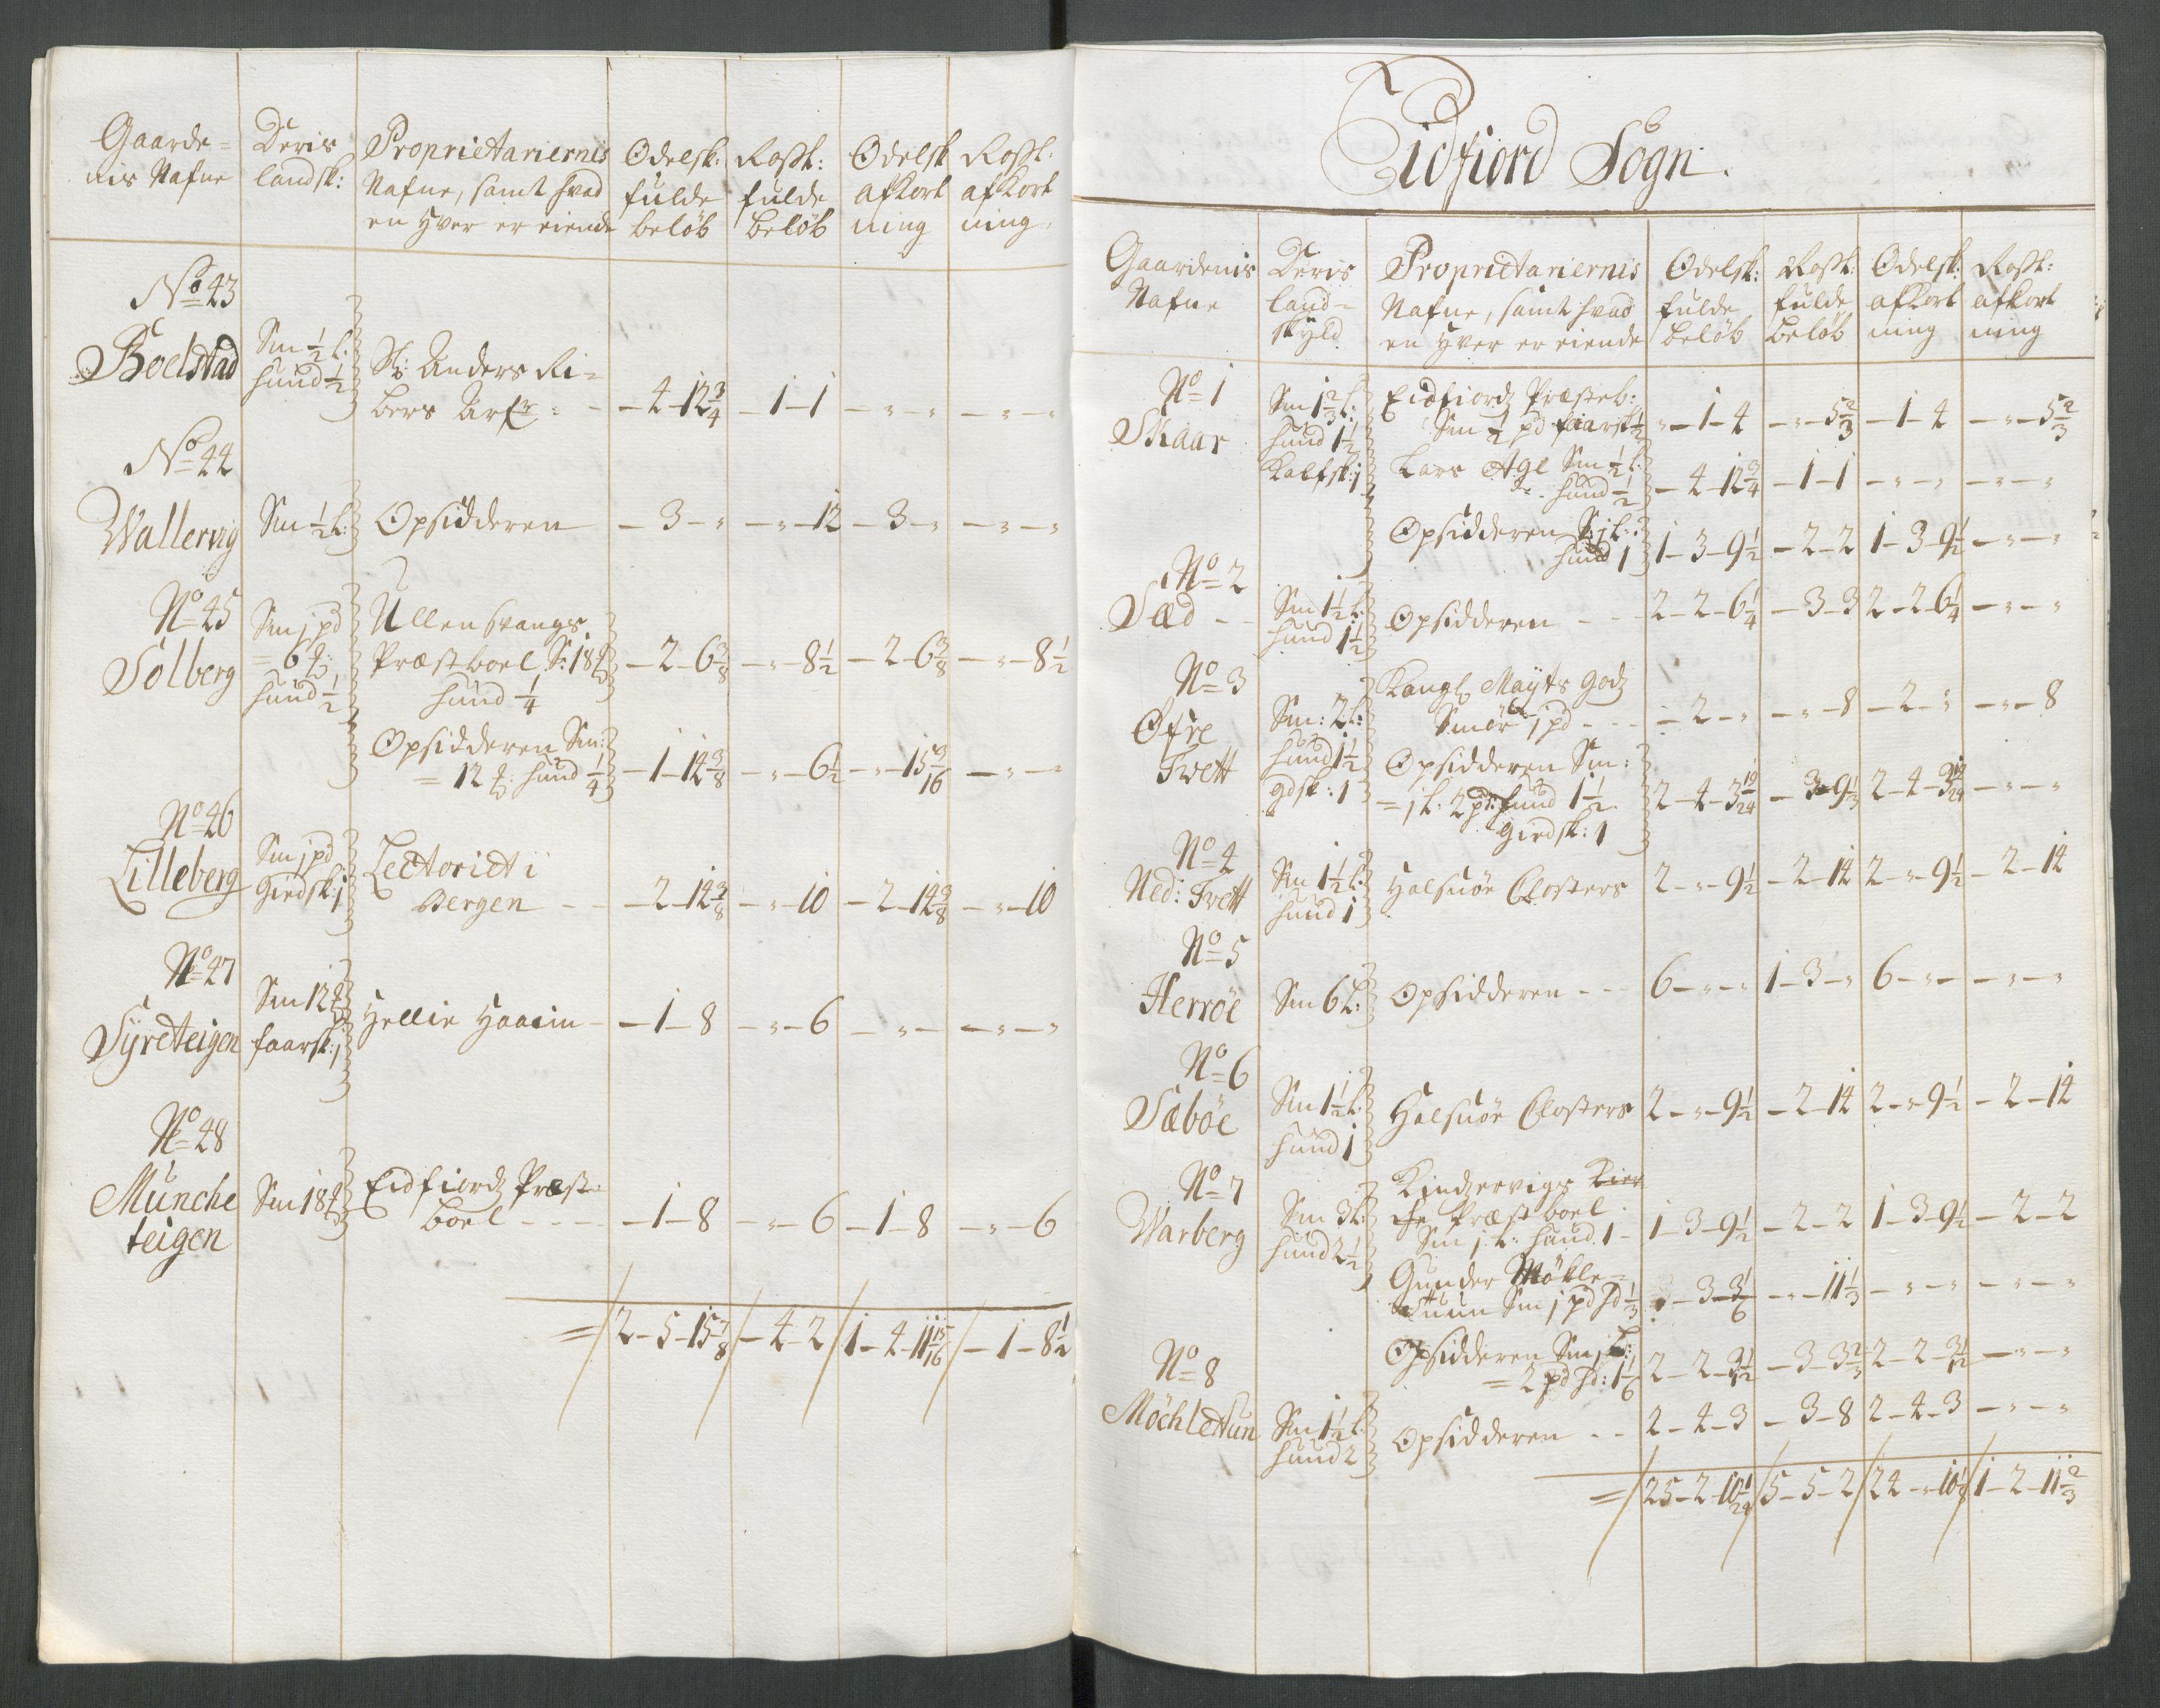 Gaarde= Deris Proprietariernis Odelsk: Rostt: Odelsk Rostt:
nis Nafne landsk: Nafne, samt hvad fulde fulde afkort afkort
en hver er eiende beløb beløb ning ning.
No 43
Boelstad Sm ½ l: Sl: Anders Ri=
hund ½ bers Arf: - 4-12¾ - 1-1 - „ - „ - „ - „
No 44
Wallervig Sm ½ l: Opsidderen - 3 - „ - „ - 12 - 3 - „ - „ - „
No 45 Sm 1 pd Ullensvangs
Solberg = 6 ℔: Præstboel S: 18 ℔ - 2-6⅜ - „ - 8½ - 2-6⅜ - „ - 8½
hund ½ hund ¼
Opsidderen Sm:
= 12 ℔: hund ¼ - 1-14⅜ - „ - 6½ - „ - 15 3/16 - „ - „
No 46
Lilleberg Sm 1 pd Lectoriet i
Giedsk: 1 Bergen - 2-14⅜ - „ - 10 - 2-14⅜ - „ - 10
No 47
Syreteigen Sm 12 ℔ Hellie Haaeim - 1-8 - „ - 6 - „ - - „ - „
faarsk: 1
No 48
Munche Sm 18 ℔ Eidfiordz Præst=
teigen boel - 1-8 - „ - 6 - 1-8 - „ - 6
= / 2-5-15⅞ / - 4-2 / 1-4-11 15/16 / - 1-8½
Eidfiord Sogn.
Gaardenis Deris Proprietariernis Odelsk: Rostt: Odelsk: Rostt:
Nafne land= Nafne, samt hvad fulde fulde afkort afkort
skyld en hver er eiende beløb beløb ning ning
No 1 Sm 1⅔ l: Eidfiordz Præsteb:
Skaar hund 1½ Sm ½ pd faarsk ½ „ - 1-4 - „ - 5⅔ - 1-4 - „ - 5⅔
Kalfsk: 1 Lars Age Sm ½ l:
hund ½ - 4-12¾ - 1-1 - „ - „ - „ - „
Opsidderen S: 1 l:
hund 1 1-3-9½ - 2-2 1-3-9½ - „ - „
No 2
Sæd Sm 1½ l: Opsidderen 2-2-6¼ - 3-3 2-2-6¼ - „ - „
hund 1½
No 3 Kongl Mayts Godz
Øfre Sm: 2 l: Smør 1 pd - 2 - „ - „ - 8 - 2 - „ - „ - 8
Tvett hund 1½ Opsidderen Sm:
gdsk: 1 = 1 l: 2 pd: hund 1½ 2-4-3 19/24 - 3-9⅓ 2-4-3 19/24 - „ - „
Giedsk: 1
No 4
Ned: Tvett Sm 1½ l: Halsnøe Closters 2 - „ - 9½ - 2-14 2 - „ - 9½ - 2-14
hund 1
No 5
Herrøe Sm 6 l: Opsidderen 6 - „ - „ 1-3 - „ 6 - „ - - „ - „
No 6
Sæbøe Sm 1½ l: Halsnøe Closters 2 - „ - 9½ - 2-14 2 - „ - 9½ - 2-14
hund 1
No 7 Kindzervigs Kier
Warberg Sm 3 l: Præstboel
hund 2½ Sm 1 l: hund 1 - 1-3-9½ - 2-2 1-3-9½ - 2-2
Gunder Møkle=
tuun Sm 1 pd hd ⅓ - 3-3⅙ - „ - 11⅓ - „ - „ - „ - „
Opsidderen Sm 1 l:
= 2 pd hd: 1⅙ 2-2-3 1/12 - 3-3⅔ 2-2-3 1/12 - „ - „
No 8
Møchletun Sm 1½ l: Opsidderen 2-4-3 - 3-8 2-4-3 - „ - „
hund 2
= / 25-2-10 1/24 / 5-5-2 / 24 - „ - 10⅛ / 1-2-11⅔